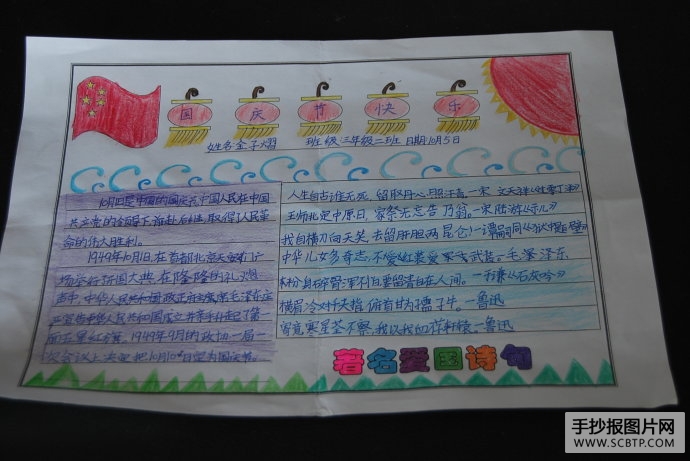 国 庆 节 快 乐
姓名:金子熠 班级:三年级二班 日期:10月5日
10月1日是中国的国庆节,中国人民在中国
共产党的领导下,前赴后继,取得了人民革
命的伟大胜利。
1949年10月1日,在首都北京天安门广
场举行开国大典,在隆隆的礼炮
声中,中华人民共和国
严宣告中华人民共和国成立并亲手升起了第
一面五星红旗。1949年9月的政协一届一
次会议上决定把10月1日定为国庆节。
人生自古谁无死,留取丹心照汗青。—宋 文天祥
王师北定中原日,家祭无忘告乃翁。—宋陆游《示儿》
我自横刀向天笑,去留肝胆两昆仑!—谭嗣同《狱中题壁》
中华儿女多奇志,不爱红装爱武装。—毛泽东
粉身碎骨浑不怕要留清白在人间。—于谦《石灰吟》
横眉冷对千夫指,俯首甘为孺子牛。—鲁迅
寄意寒星荃不察,我以我血荐轩辕—鲁迅
著名爱国诗句
手抄报图片网
WWW.SCBTP.COM